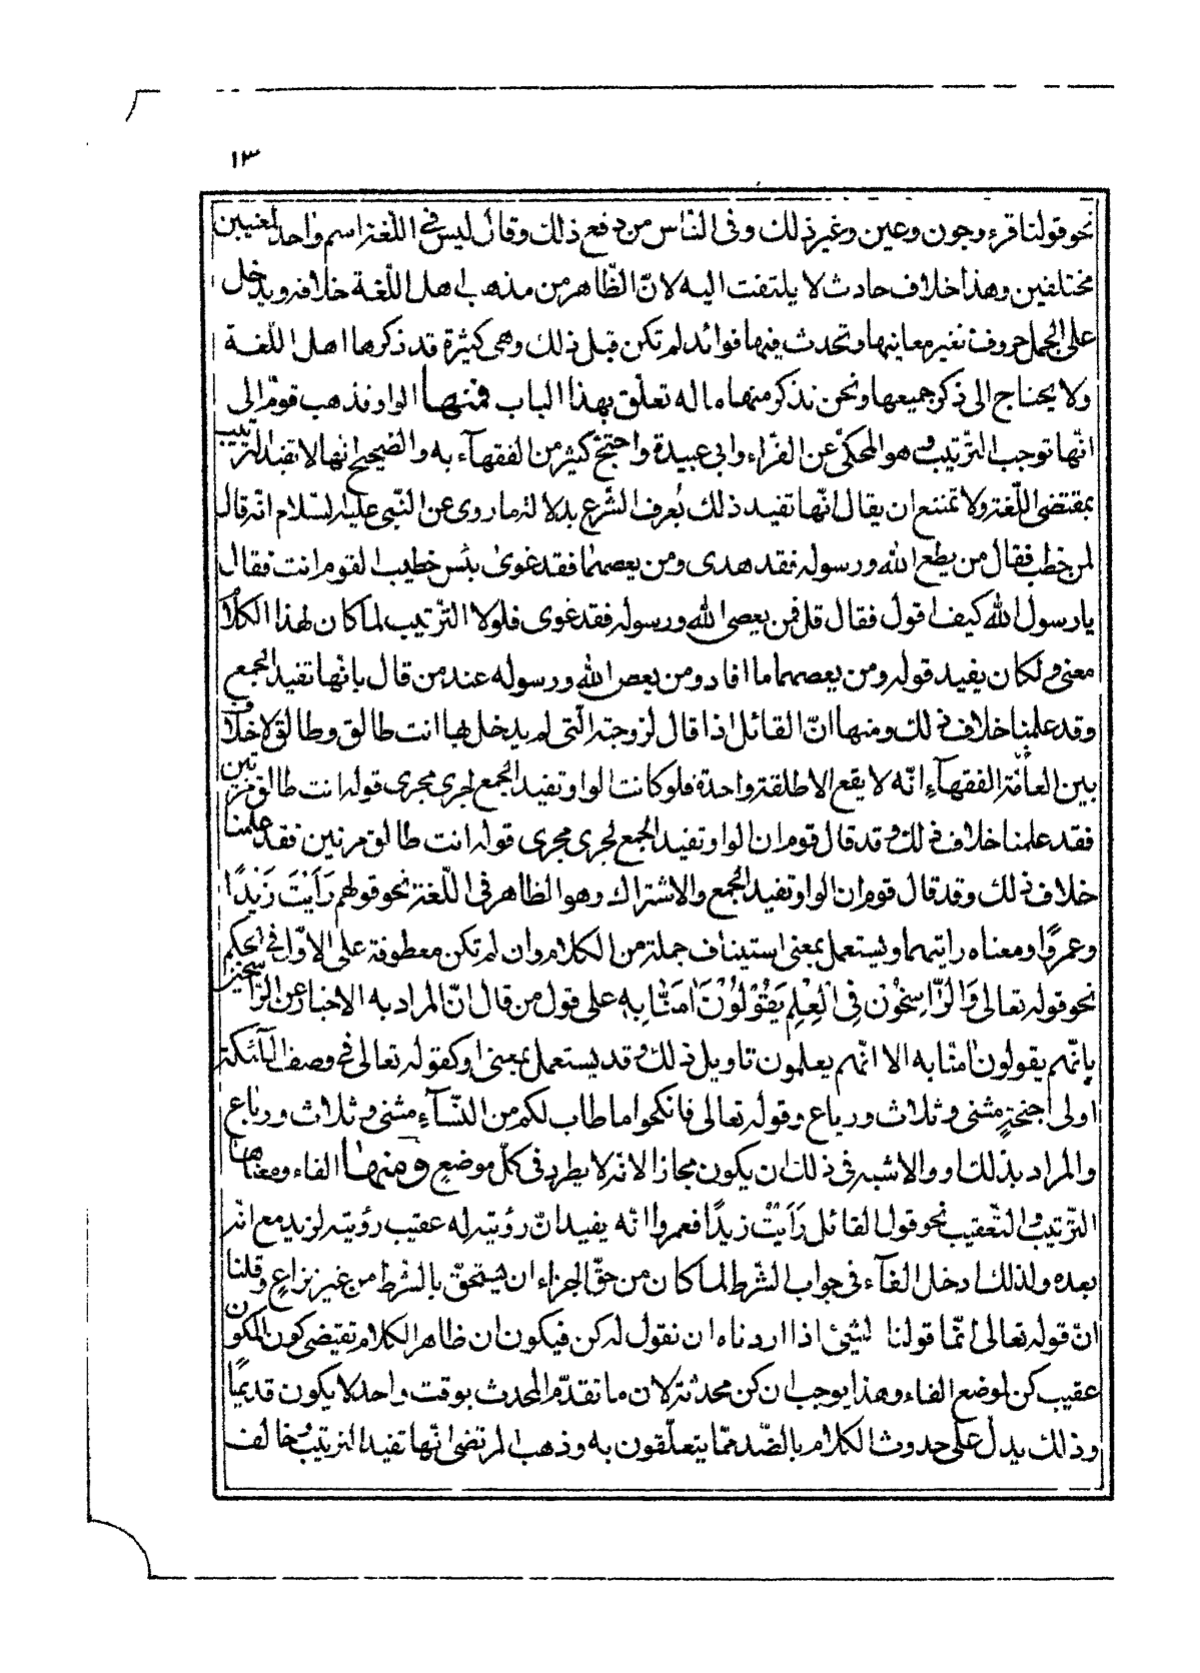 ١٣
نحو قولنا قرء وجون وعين وغير ذلك وفى النّاس من دفع ذلك وقال ليس فى اللّغة اسم واحد لمعنيين
مختلفين وهذا خلاف حادث لا يلتفت اليه لانّ الظّاهر من مذهب اهل اللّغة خلافه ويدخل
على الجمل حروف تغير معانيها وتحدث فيها فوائد لم تكن قبل ذلك وهى كثيرة قد ذكرها اهل اللّغة
ولا يحتاج الى ذكر جميعها ونحن نذكر منها ما له تعلّق بهذا الباب فمنها الواو فذهب قوم الى
انّها توجب التّرتيب وهو المحكىّ عن الفرّاء وابى عبيدة واحتجّ كثير من الفقهآء به والصّحيح انّها لا تفيد الترتيب
بمقتضى اللّغة ولا يمتنع ان يقال انّها تفيد ذلك بعُرف الشّرع بدلالة ما روى عن النّبى عليه السّلام انّه قال
لمن خطب فقال من يطع الله ورسوله فقد هدى ومن يعصهما فقد غوىٰ بئس خطيب القوم انت فقال
يا رسول الله كيف اقول فقال قل فمن يعصى الله ورسوله فقد غوى فلولا التّرتيب لما كان لهذا الكلام
معنى ولكان يفيد قوله ومن يعصهما ما افاد ومن يعص الله ورسوله عند من قال بانّها تفيد الجمع
وقد علمنا خلاف ذلك ومنها انّ القائل اذا قال لزوجته الّتى لم يدخل بها انت طالق وطالق لا خلاف
بين العامّة الفقهآء انّه لا يقع الا طلقة واحدة فلو كانت الواو تفيد الجمع لجرى مجرى قوله انت طالق مرّتين
فقد علمنا خلاف ذلك وقد قال قوم ان الواو تفيد الجمع لجرى مجرى قوله انت طالق مرتين فقد علمنا
خلاف ذلك وقد قال قوم ان الواو تفيد الجمع والاشتراك وهو الظاهر فى اللّغة نحو قولهم رَاَيْتَ زَيْدًا
وعمروًا ومعناه رايتهما ويستعمل بمعنى استيناف جملة من الكلام وان لم تكن معطوفة على الاوّل فى الحكم
نحو قوله تعالى وَالرَّاسِخُونَ فِى الْعِلْمِ يَقُوْلُوْنَ اٰمَنَّا بِهِ على قول من قال انّ المراد به الاخبار عن الرّاسخين
بانّهم يقولون اٰمنّا به الا انّهم يعلمون تاويل ذلك وقد يستعمل بمعنى او كقوله تعالى فى وصف الملآئكة
اولى اجنحةٍ مثنى وثلاث ورباع وقوله تعالى فانكحوا ما طاب لكم من النّسآء مثنى وثلاث ورباع
والمراد بذلك او والاشبه فى ذلك ان يكون مجازا لانّه لا يطرد فى كلّ موضع ومنها الفاء ومعناها
التّرتيب والتّعقيب نحو قول القائل رَاَيْتُ زيدًا فعمروا انّه يفيد انّ رؤيته له عقيب رؤيته لزيد مع انّه
بعده ولذلك ادخل الفآء فى جواب الشّرط لما كان من حقّ الجزاء ان يستحقّ بالشّرط من غير نزاعٍ وقلنا
انّ قوله تعالى انّما قولنا لشئ اذا اردناه ان نقول له كن فيكون ان ظاهر الكلام تقتضى كون المكون
عقيب كن لموضع الفاء وهذا يوجب ان كن محدثة لان ما تقدّم المحدث بوقت واحد لا يكون قديمًا
وذلك يدلّ على حدوث الكلام بالضّد ممّا يتعلّقون به وذهب المرتضى انّها تفيد الترتيب وخالف